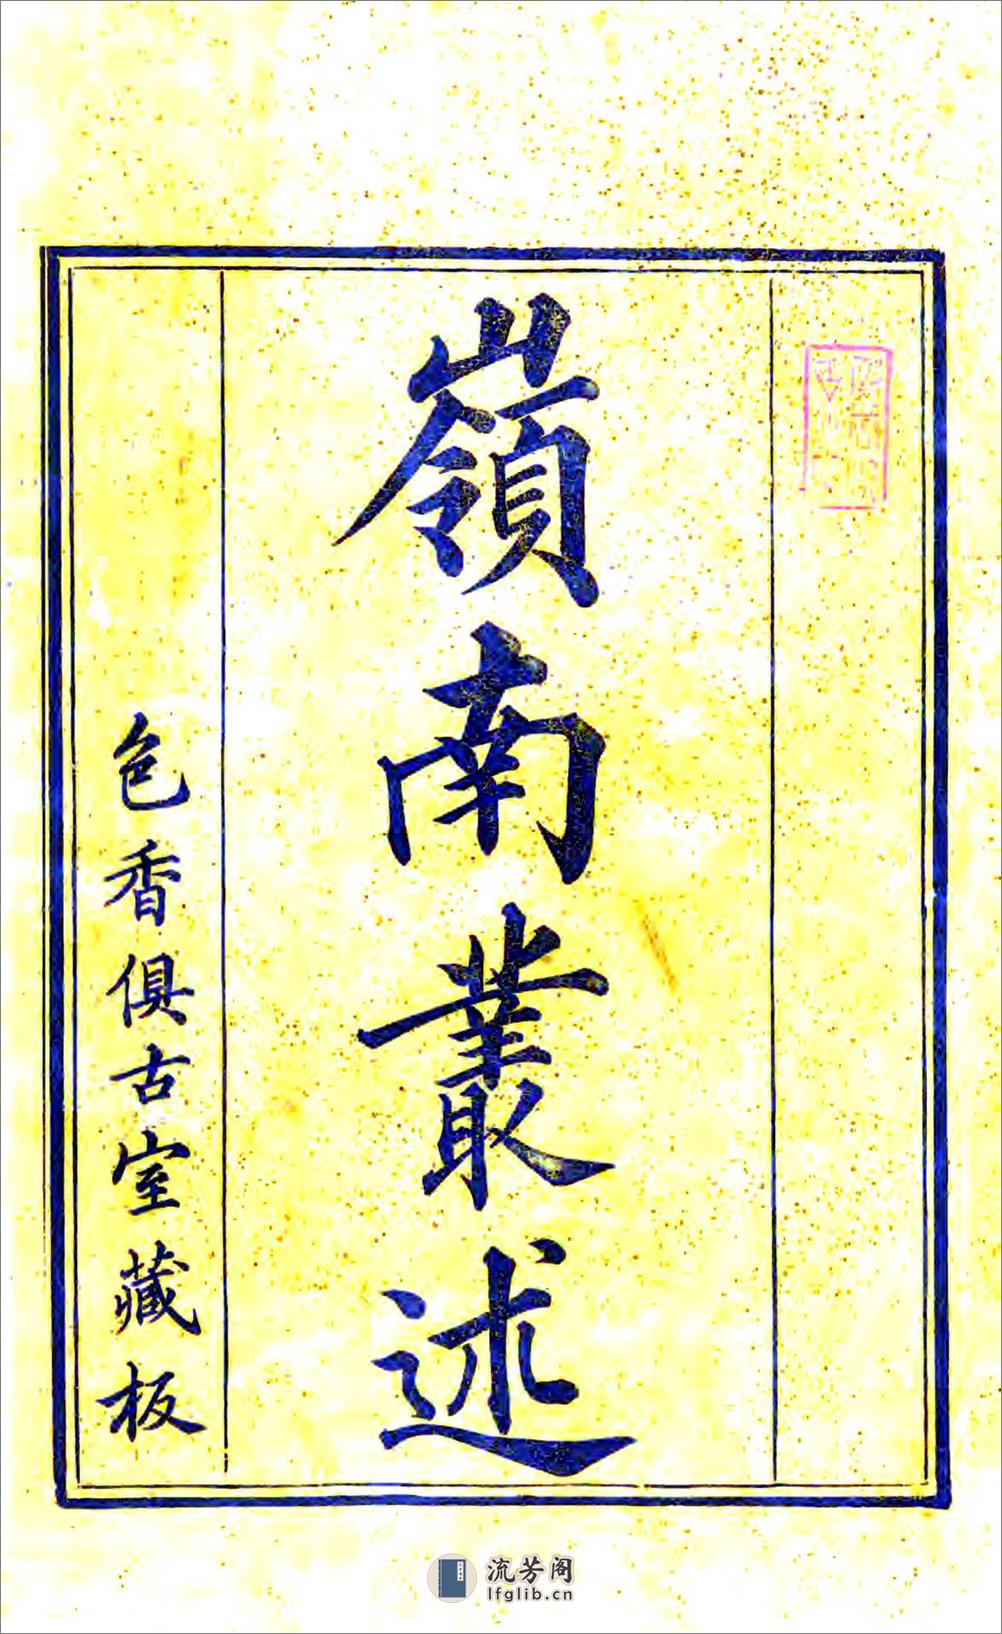 嶺南叢述
色香俱古室藏板
流芳阁
lfglib.cn